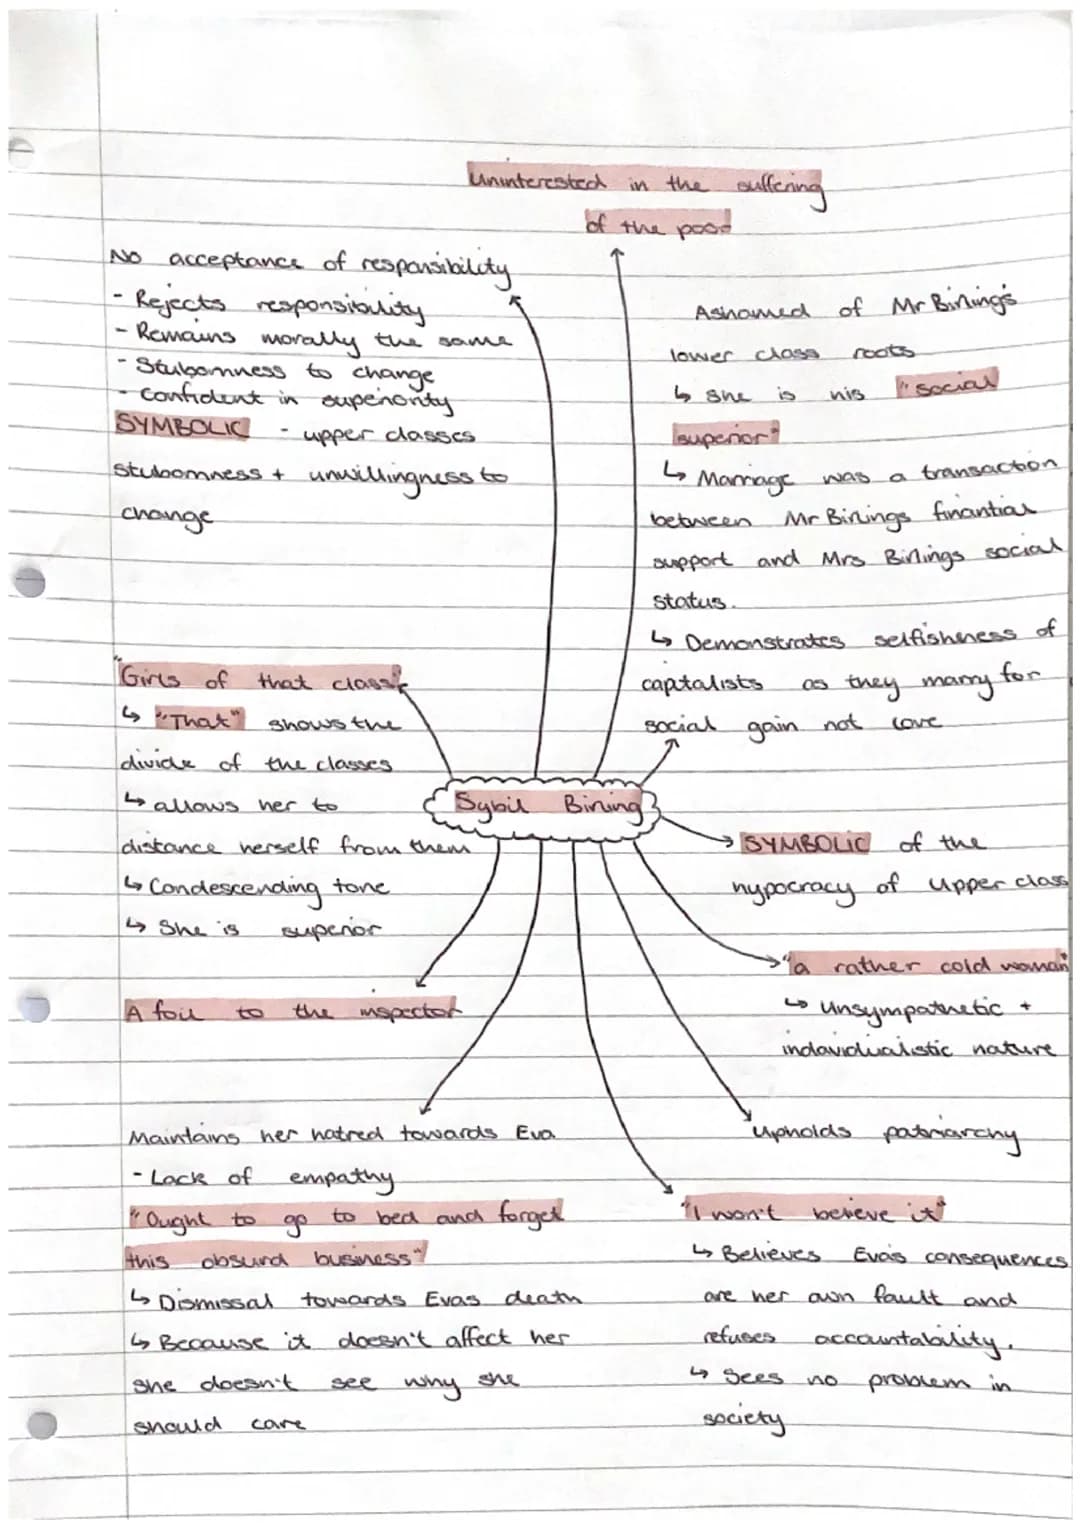 Uninterested in the suffering
of the poor
No acceptance of responsibility
- Rejects responsibility
- Remains morally the same
- Stubornness to change
- Confident in superiority
SYMBOLIC - upper classes
stubornness + unwillingness to
change
Ashamed of Mr Birling's
lower class roots
↳ she is his "social
superior"
↳ Marriage was a transaction
between Mr Birlings finantial
support and Mrs Birlings social
status.
↳ Demonstrates selfishness of
capitalists as they marry for
social gain not love
"Girls of that class"
↳ "That" shows the
divide of the classes
↳ allows her to
distance herself from them
↳ Condescending tone
↳ She is superior
Sybil Birling
SYMBOLIC of the
hypocracy of Upper class
"a rather cold woman"
↳ Unsympathetic +
indavidualistic nature
A foil to the inspector
Maintains her hatred towards Eva
- Lack of empathy
"Ought to go to bed and forget
this absurd business"
↳ Dismissal towards Evas death
↳ Because it doesn't affect her
she doesn't see why she
should care
Upholds patriarchy
"I won't believe it"
↳ Believes Eva's consequences
are her own fault and
refuses accountability.
↳ Sees no problem in
society